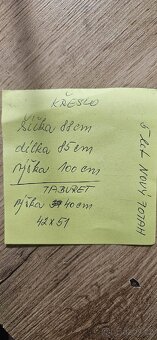 KŘESLO
šířka 88cm
délka 85cm
výška 100cm
TABURET
výška 40cm
42x51
5 LET NOVÝ POTAH